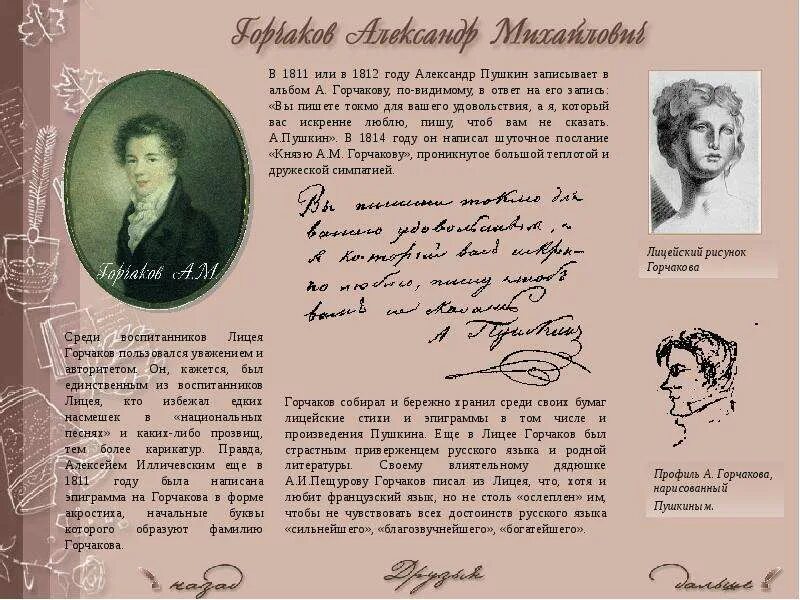 Горчаков Александр Михайлович
В 1811 или в 1812 году Александр Пушкин записывает в
альбом А. Горчакову, по-видимому, в ответ на его запись:
«Вы пишете токмо для вашего удовольствия, а я, который
вас искренне люблю, пишу, чтоб вам не сказать.
А.Пушкин». В 1814 году он написал шуточное послание
«Князю А.М. Горчакову», проникнутое большой теплотой и
дружеской симпатией.
Горчаков А.М.
Вы пишете токмо для
вашего удовольствия, а
я который васъ искрен-
но люблю, пишу чтобъ
вамъ не сказать
А Пушкинъ
Лицейский рисунок
Горчакова
Среди воспитанников Лицея
Горчаков пользовался уважением и
авторитетом. Он, кажется, был
единственным из воспитанников
Лицея, кто избежал едких
насмешек в «национальных
песнях» и каких-либо прозвищ,
тем более карикатур. Правда,
Алексейем Илличевским еще в
1811 году была написана
эпиграмма на Горчакова в форме
акростиха, начальные буквы
которого образуют фамилию
Горчакова.
Горчаков собирал и бережно хранил среди своих бумаг
лицейские стихи и эпиграммы в том числе и
произведения Пушкина. Еще в Лицее Горчаков был
страстным приверженцем русского языка и родной
литературы. Своему влиятельному дядюшке
А.И.Пещурову Горчаков писал из Лицея, что, хотя и
любит французский язык, но не столь «ослеплен» им,
чтобы не чувствовать всех достоинств русского языка
«сильнейшего», «благозвучнейшего», «богатейшего».
Профиль А. Горчакова,
нарисованный
Пушкиным.
назад
Друзья
дальше